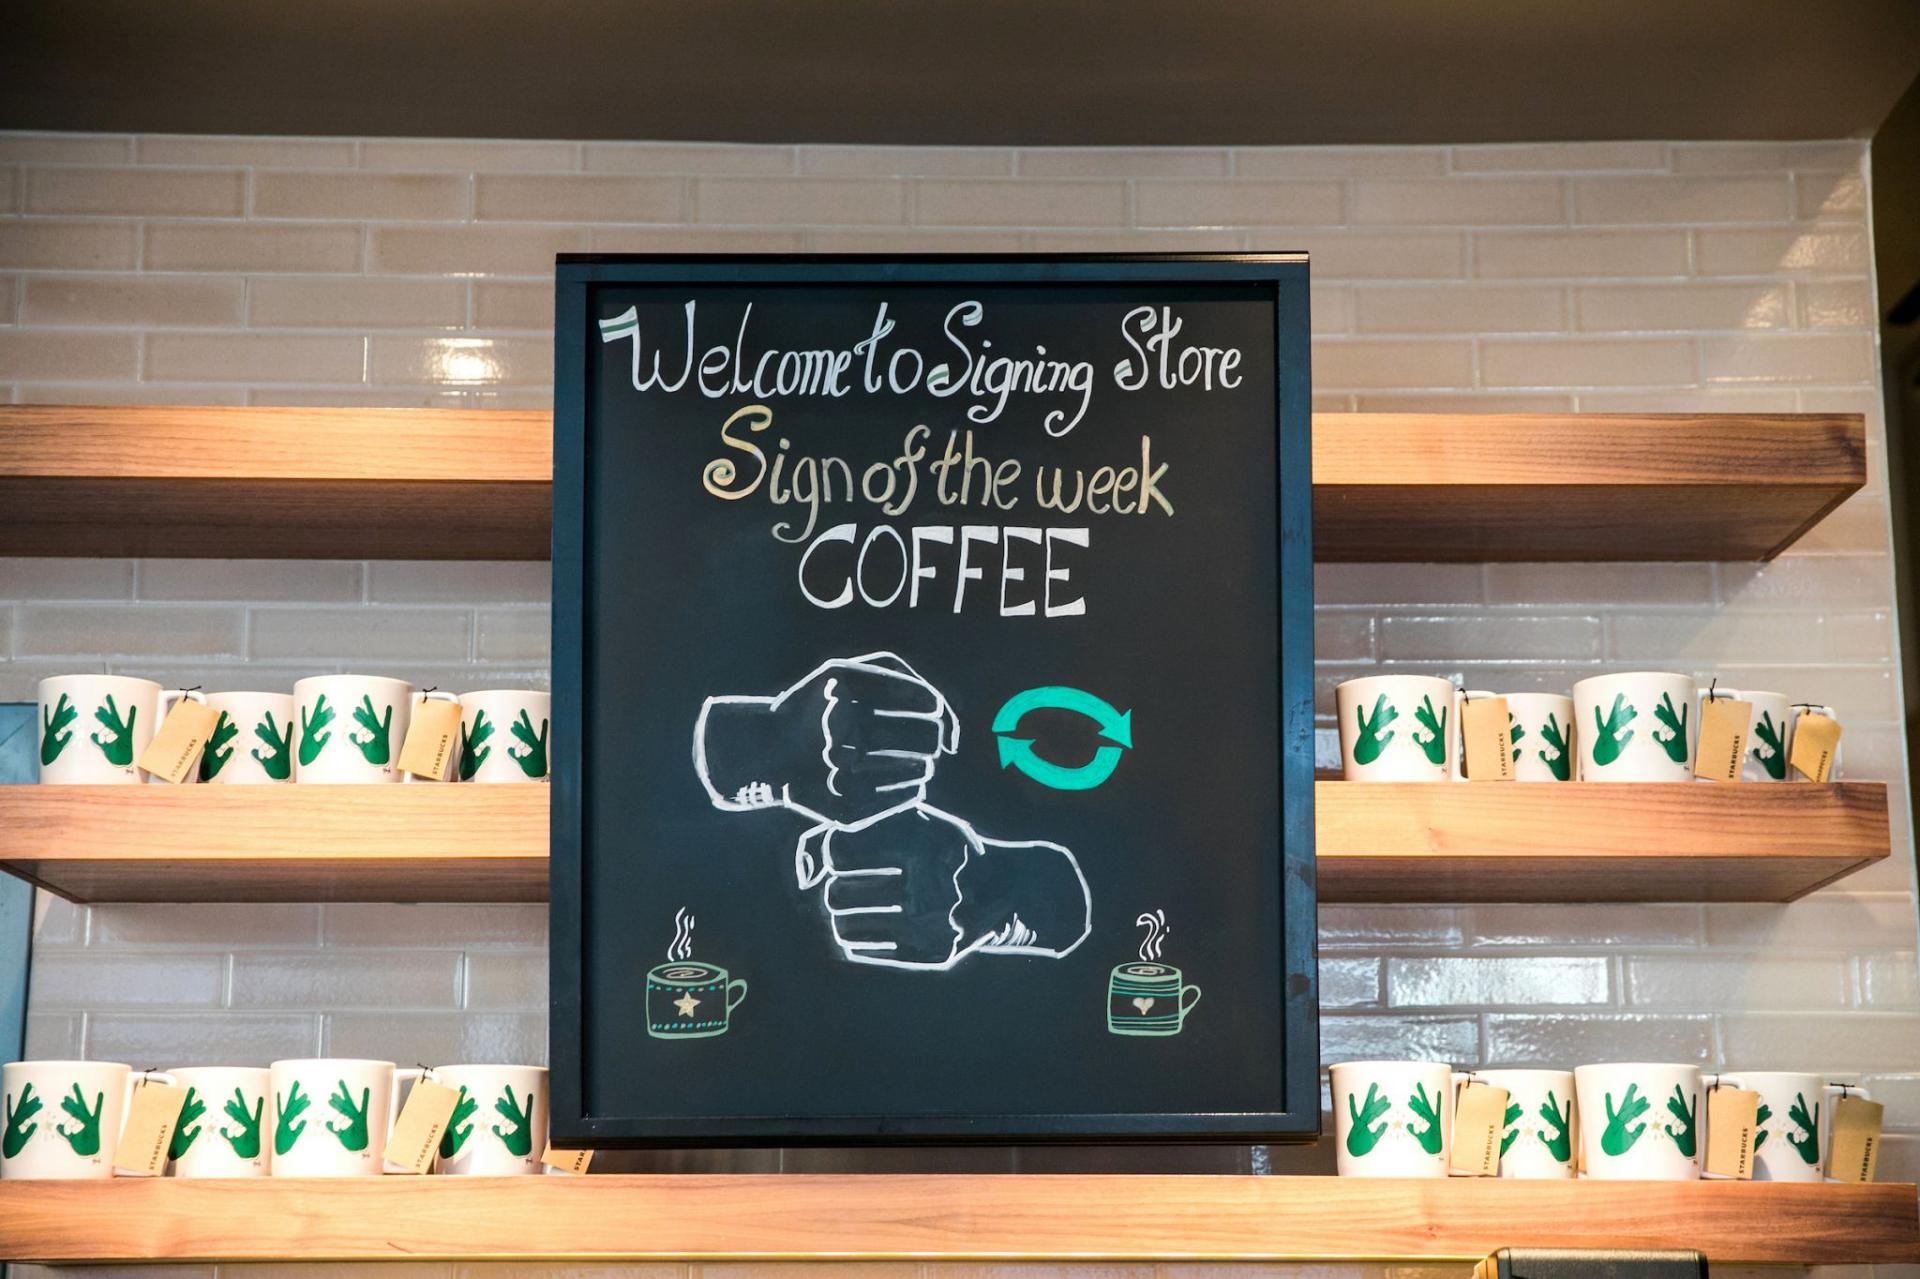 Welcome to Signing Store
Sign of the week
COFFEE
STARBUCKS
STARBUCKS
STARBUCKS
STARBUCKS
STARBUCKS
STARBUCKS
STARBUCKS
STARBUCKS
STARBUCKS
STARBUCKS